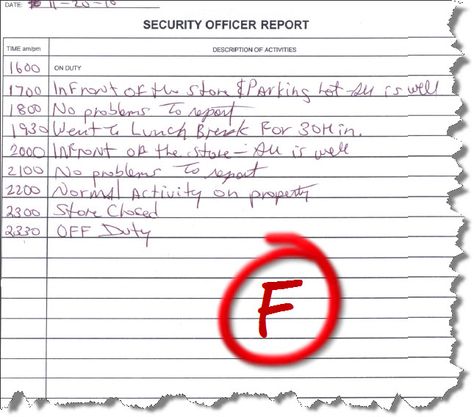 DATE: 11-20-10
SECURITY OFFICER REPORT
TIME am/pm DESCRIPTION OF ACTIVITIES
1600 ON DUTY
1700 InFront of the Store & Parking Lot - All is well
1800 No problems To report
1930 Went to Lunch Break For 30 Min.
2000 InFront of the store - All is well
2100 No problems To report
2200 Normal Activity on property
2300 Store Closed
2330 OFF Duty
F